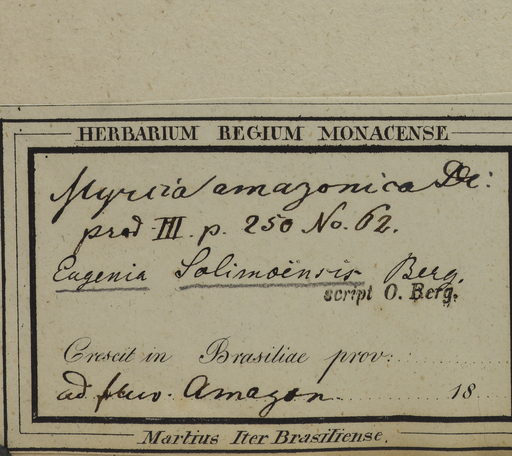 HERBARIUM REGIUM MONACENSE
Myrcia amazonica DC:
prod III. p. 250 No. 62.
Eugenia Solimoënsis Berg.
script O. Berg.
Crescit in Brasiliae prov:
ad fluv. Amazon 18
Martius Iter Brasiliense.